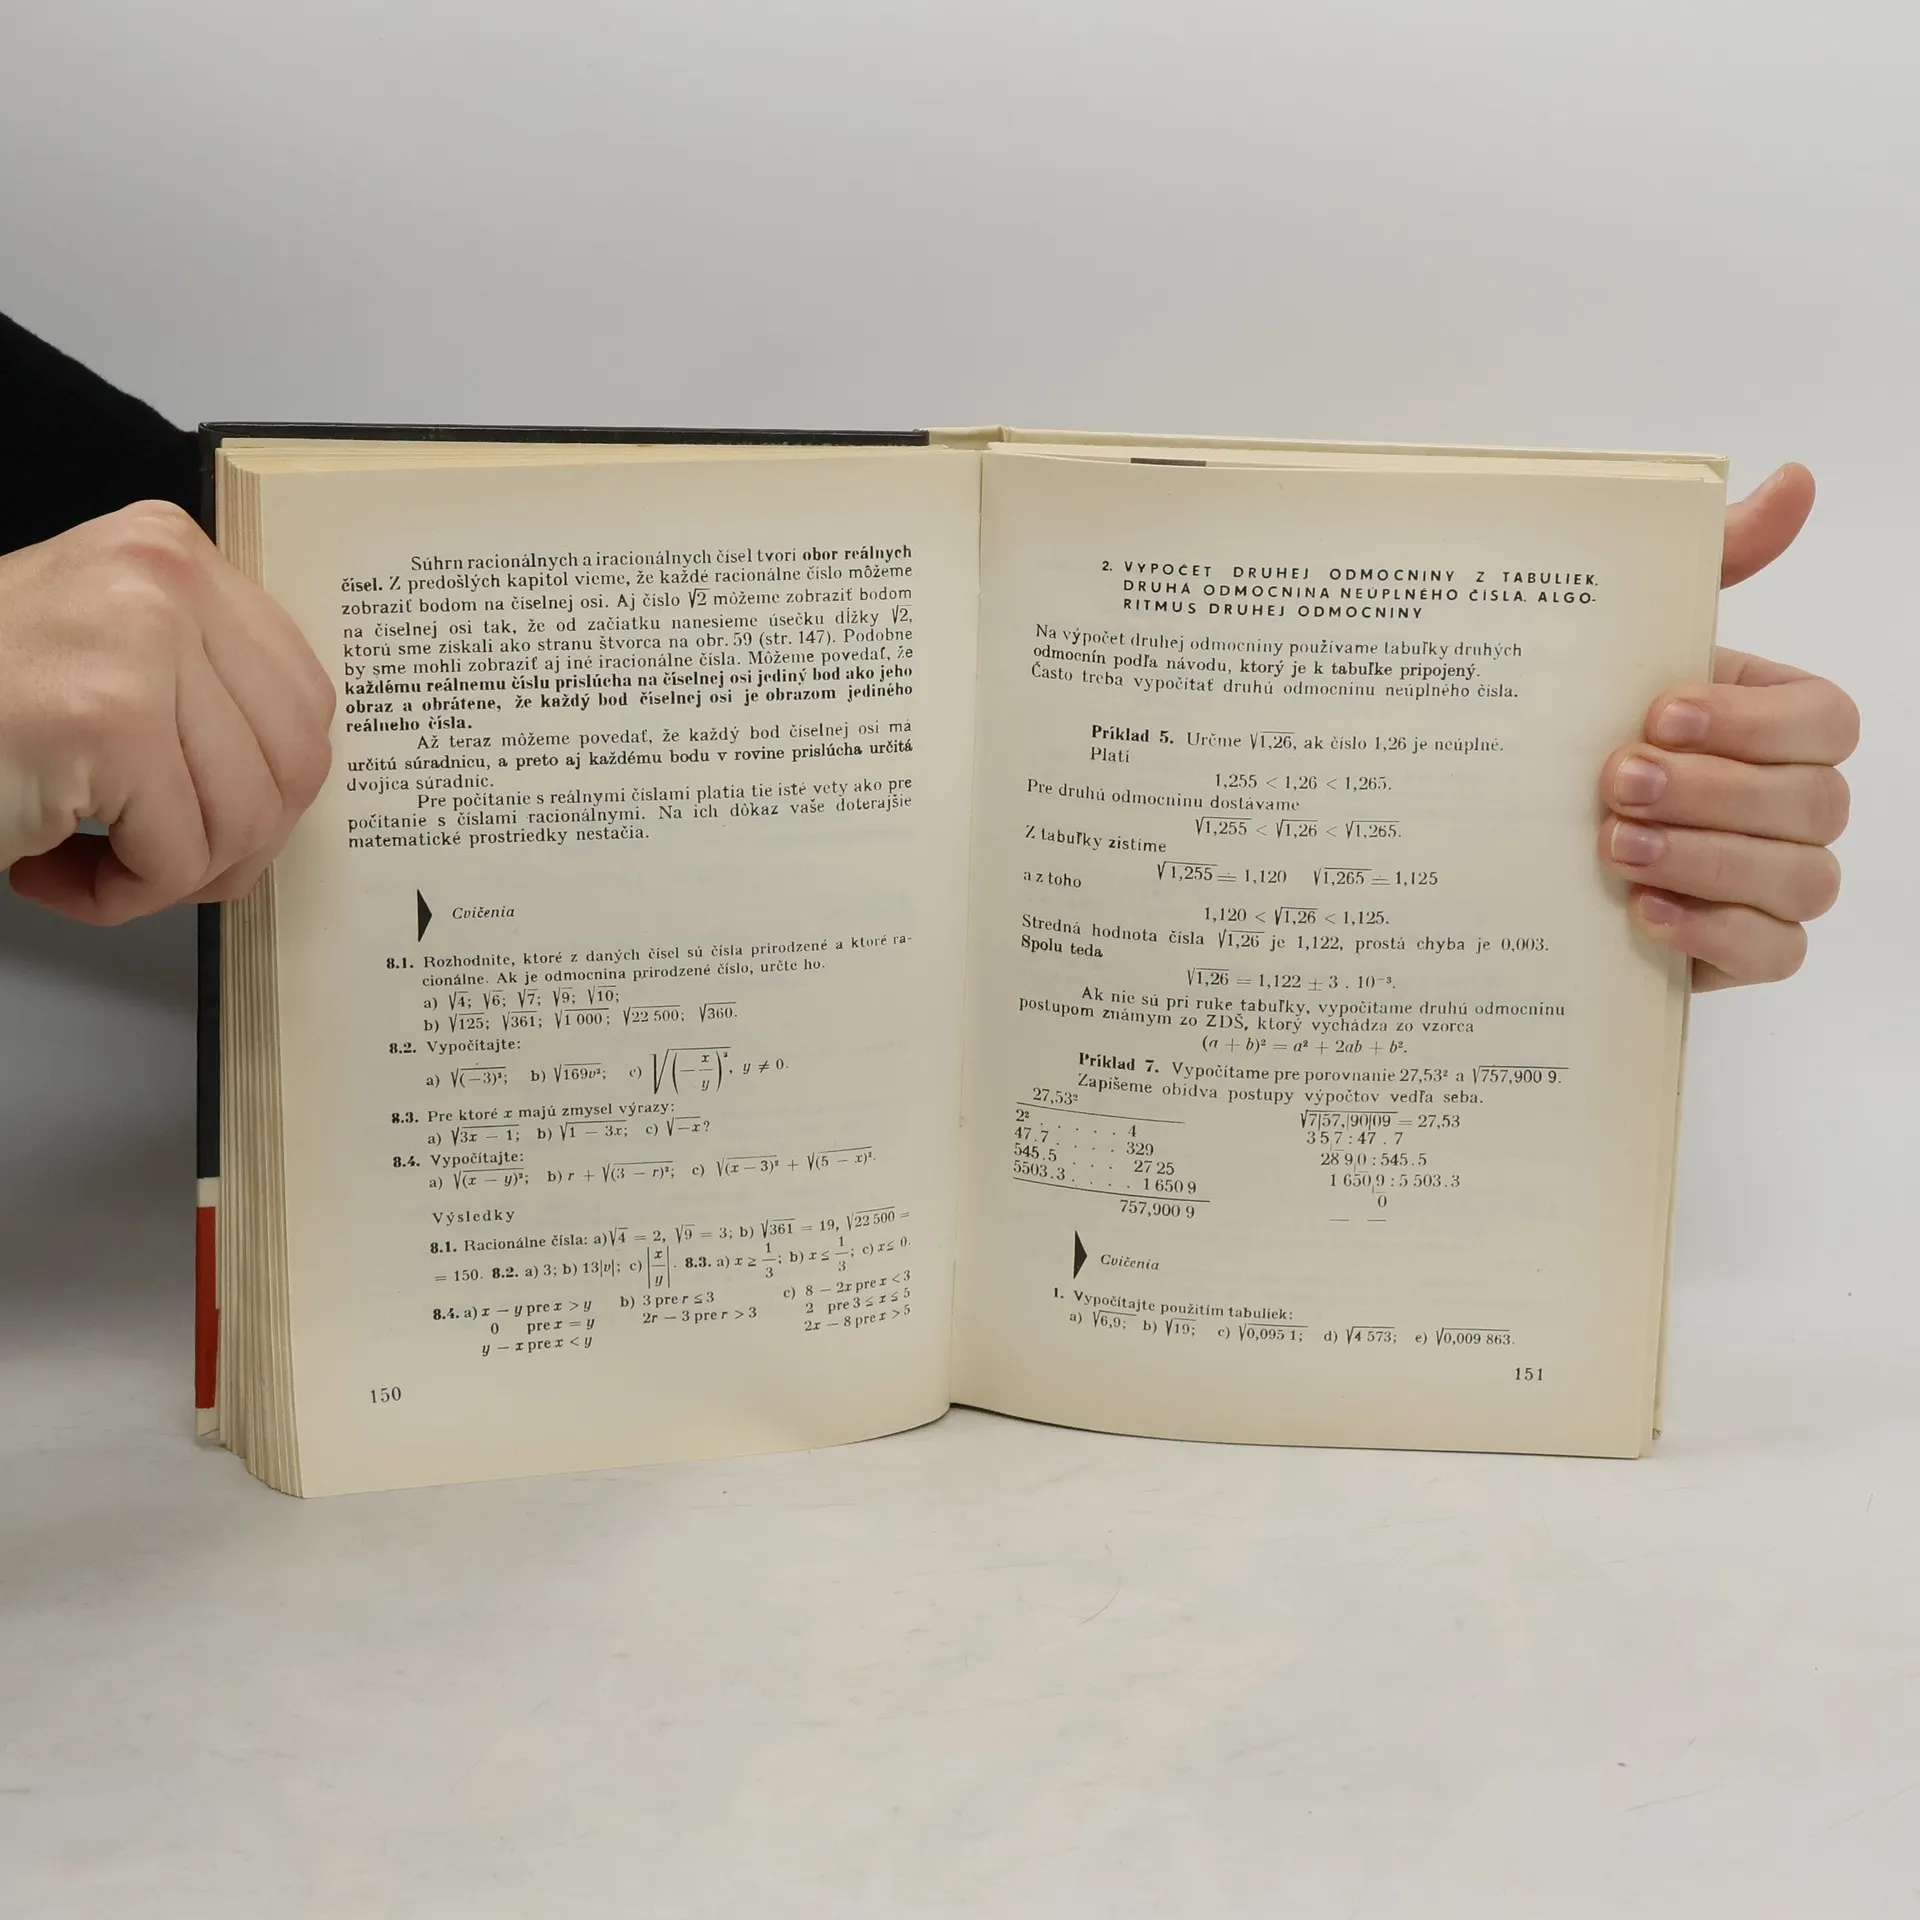 Súhrn racionálnych a iracionálnych čísel tvorí obor reálnych
čísel. Z predošlých kapitol vieme, že každé racionálne číslo môžeme
zobraziť bodom na číselnej osi. Aj číslo √2 môžeme zobraziť bodom
na číselnej osi tak, že od začiatku nanesieme úsečku dĺžky √2,
ktorú sme získali ako stranu štvorca na obr. 59 (str. 147). Podobne
by sme mohli zobraziť aj iné iracionálne čísla. Môžeme povedať, že
každému reálnemu číslu prislúcha na číselnej osi jediný bod ako jeho
obraz a obrátene, že každý bod číselnej osi je obrazom jediného
reálneho čísla.
Až teraz môžeme povedať, že každý bod číselnej osi má
určitú súradnicu, a preto aj každému bodu v rovine prislúcha určitá
dvojica súradníc.
Pre počítanie s reálnymi číslami platia tie isté vety ako pre
počítanie s číslami racionálnymi. Na ich dôkaz vaše doterajšie
matematické prostriedky nestačia.
Cvičenia
8.1. Rozhodnite, ktoré z daných čísel sú čísla prirodzené a ktoré ra-
cionálne. Ak je odmocnina prirodzené číslo, určte ho.
a) √4; √6; √7; √9; √10;
b) √125; √361; √1 000; √22 500; √360.
8.2. Vypočítajte:
a) √(−3)²; b) √169v²; c) √(−x/y)², y ≠ 0.
8.3. Pre ktoré x majú zmysel výrazy:
a) √3x − 1; b) √1 − 3x; c) √−x?
8.4. Vypočítajte:
a) √(x − y)²; b) r + √(3 − r)²; c) √(x − 3)² + √(5 − x)².
Výsledky
8.1. Racionálne čísla: a) √4 = 2, √9 = 3; b) √361 = 19, √22 500 =
= 150. 8.2. a) 3; b) 13|v|; c) |x/y|. 8.3. a) x ≥ 1/3; b) x ≤ 1/3; c) x ≤ 0.
8.4. a) x − y pre x > y b) 3 pre r ≤ 3 c) 8 − 2x pre x < 3
0 pre x = y 2r − 3 pre r > 3 2 pre 3 ≤ x ≤ 5
y − x pre x < y 2x − 8 pre x > 5
150
2. VÝPOČET DRUHEJ ODMOCNINY Z TABULIEK.
DRUHÁ ODMOCNINA NEÚPLNÉHO ČÍSLA. ALGO-
RITMUS DRUHEJ ODMOCNINY
Na výpočet druhej odmocniny používame tabuľky druhých
odmocnín podľa návodu, ktorý je k tabuľke pripojený.
Často treba vypočítať druhú odmocninu neúplného čísla.
Príklad 5. Určme √1,26, ak číslo 1,26 je neúplné.
Platí
1,255 < 1,26 < 1,265.
Pre druhú odmocninu dostávame
√1,255 < √1,26 < √1,265.
Z tabuľky zistíme
√1,255 ≐ 1,120 √1,265 ≐ 1,125
a z toho
1,120 < √1,26 < 1,125.
Stredná hodnota čísla √1,26 je 1,122, prostá chyba je 0,003.
Spolu teda
√1,26 = 1,122 ± 3 . 10⁻³.
Ak nie sú pri ruke tabuľky, vypočítame druhú odmocninu
postupom známym zo ZDŠ, ktorý vychádza zo vzorca
(a + b)² = a² + 2ab + b².
Príklad 7. Vypočítame pre porovnanie 27,53² a √757,900 9.
Zapíšeme obidva postupy výpočtov vedľa seba.
27,53² √7|57,|90|09 = 27,53
2² . . . . . 4 35,7 : 47 . 7
47.7 . . . . 329 28 9,0 : 545 . 5
545.5 . . . 27 25 1 650,9 : 5 503 . 3
5503.3 . . . . 1 650 9 0
757,900 9
Cvičenia
1. Vypočítajte použitím tabuliek:
a) √6,9; b) √19; c) √0,095 1; d) √4 573; e) √0,009 863.
151